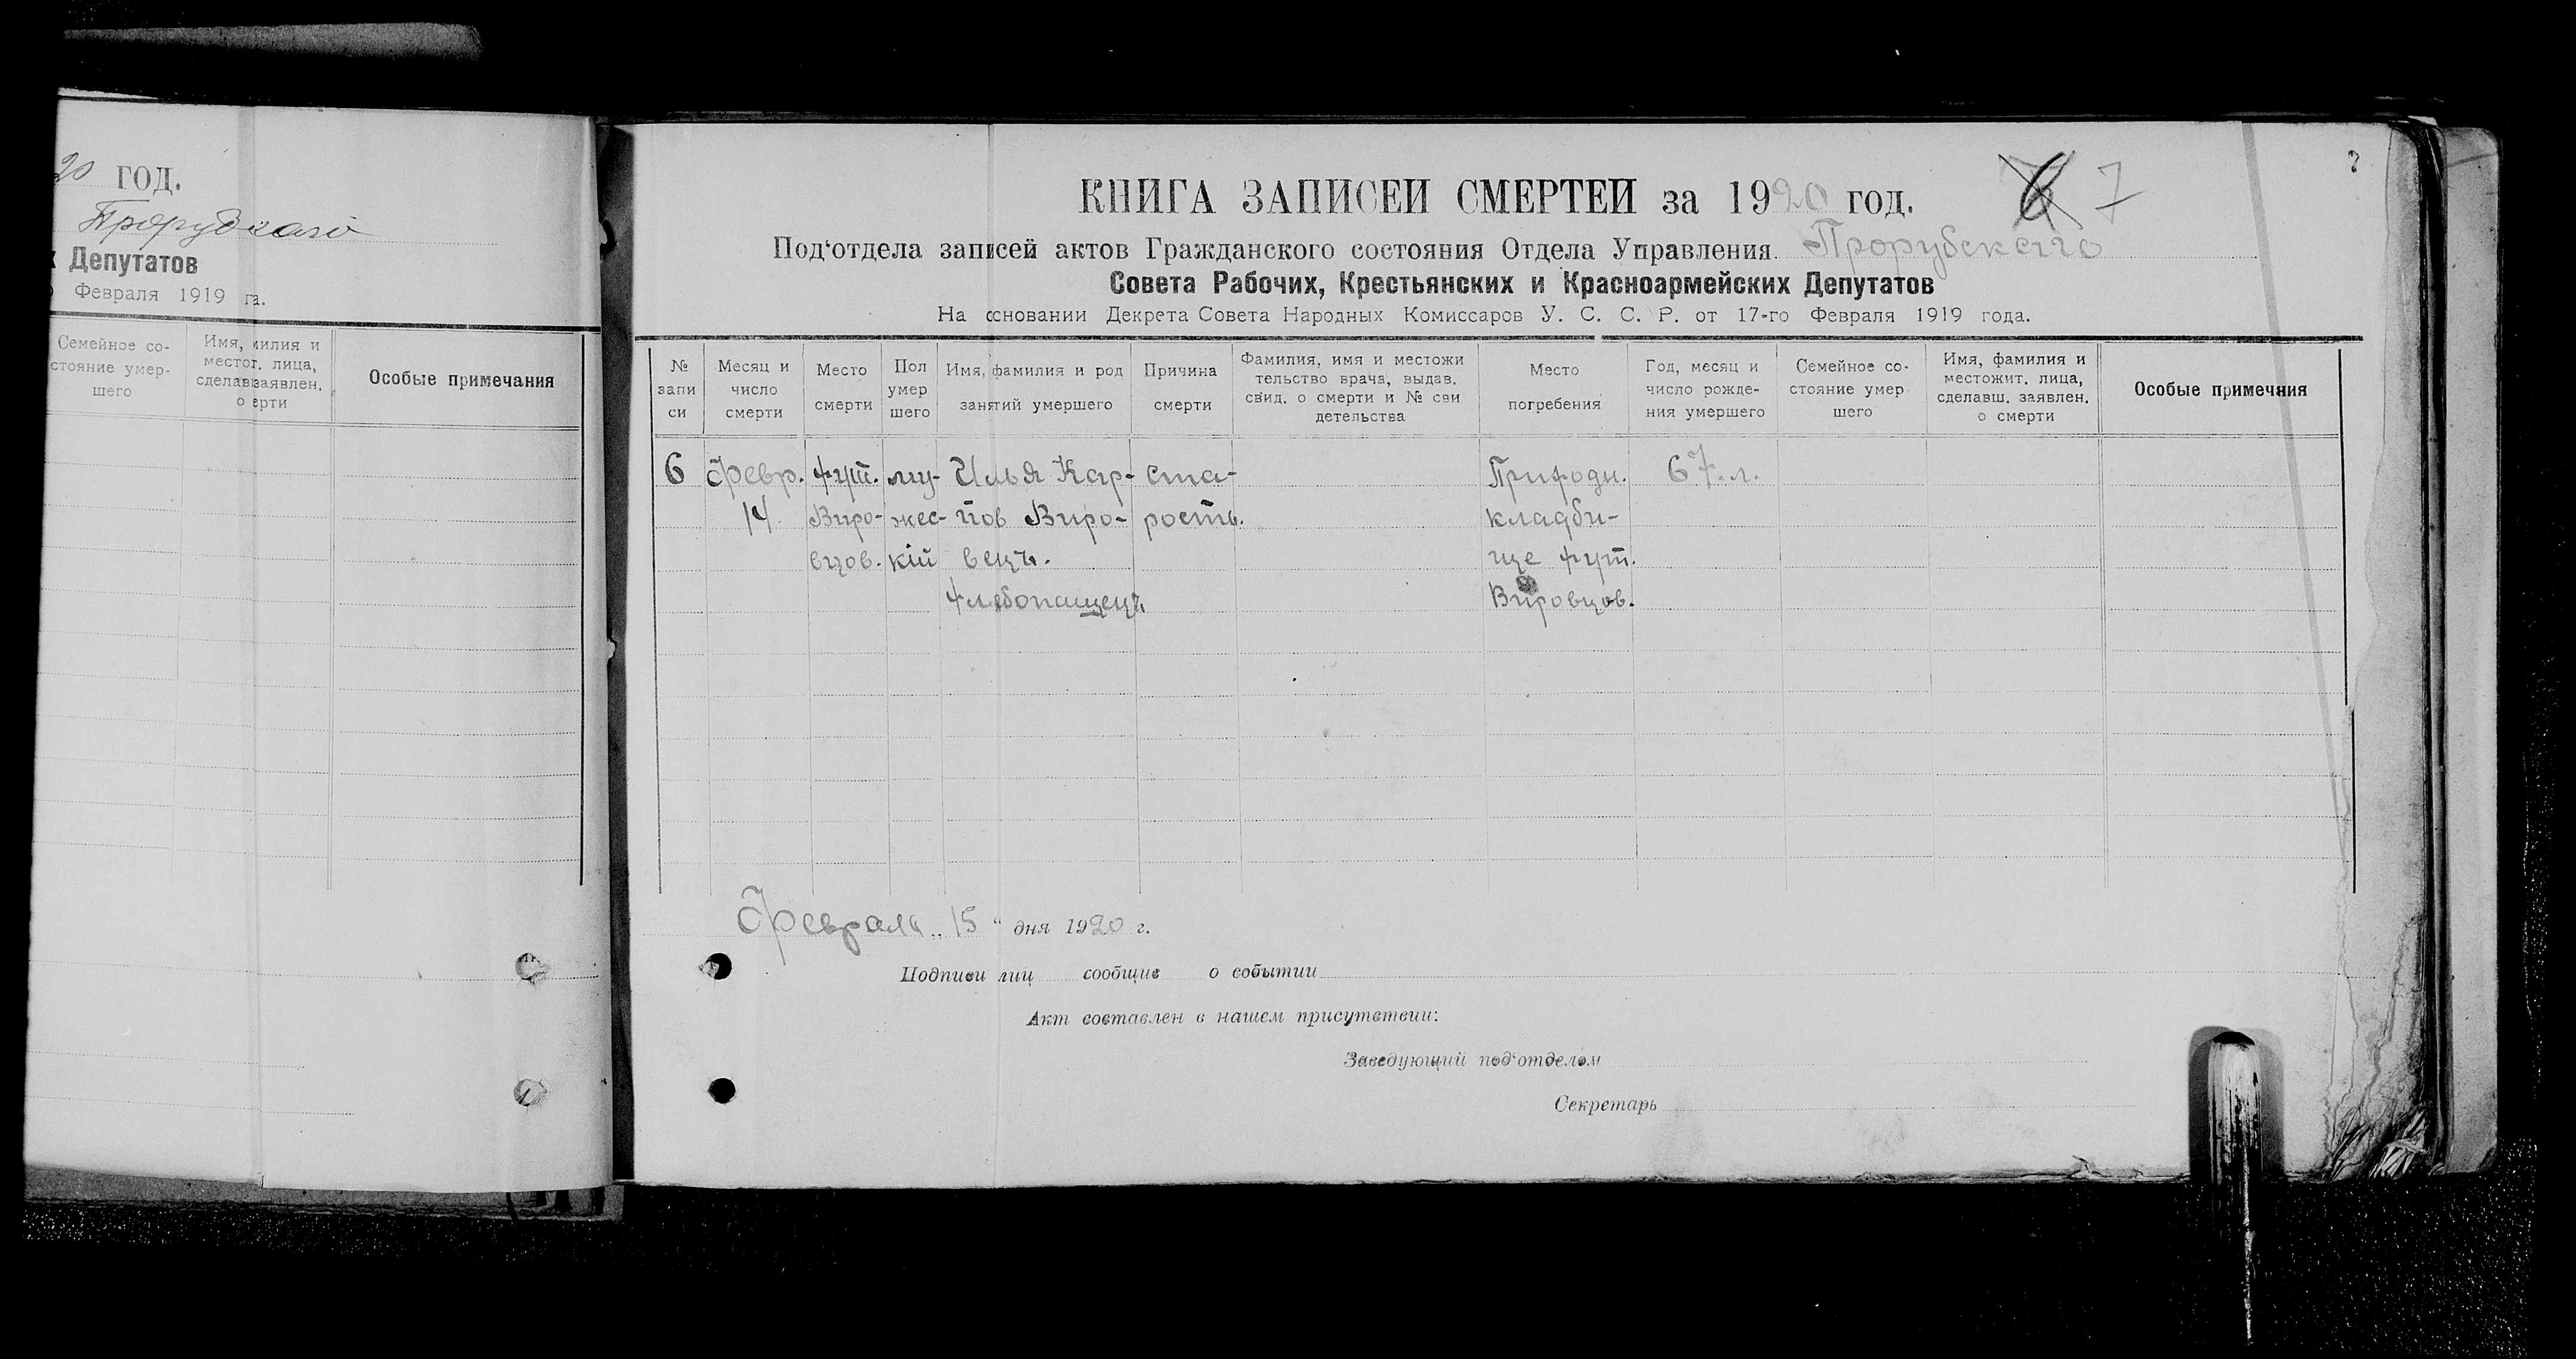 20 ГОД.
Прорубскаго
Депутатов
Февраля 1919 га.
Семейное со-
стояние умер-
шего
Имя, милия и
местог. лица,
сделав заявлен.
о ерти
Особые примечания
КНИГА ЗАПИСЕЙ СМЕРТЕЙ за 1920 год.
6 7
Под'отдела записей актов Гражданского состояния Отдела Управления Прорубскаго
Совета Рабочих, Крестьянских и Красноармейских Депутатов
На основании Декрета Совета Народных Комиссаров У. С. С. Р. от 17-го Февраля 1919 года.
№
запи
си
Месяц и
число
смерти
Место
смерти
Пол
умер
шего
Имя, фамилия и род
занятий умершего
Причина
смерти
Фамилия, имя и местожи
тельство врача, выдав.
свид. о смерти и № сви
детельства
Место
погребения
Год, месяц и
число рожде-
ния умершего
Семейное со-
стояние умер
шего
Имя, фамилия и
местожит. лица,
сделавш. заявлен.
о смерти
Особые примечния
6 Февр. хут. му- Илья Кар- ста- Приходн. 67.л.
14 Виро- жес- пов Виро- рость. кладби-
вцов. кій вецъ. ще хут.
хлебопащецъ Вировцов.
Февраля „ 15 “ дня 1920 г.
Подписи лиц сообщив о событии
Акт составлен в нашем присутствии:
Заведующий под'отделом
Секретарь